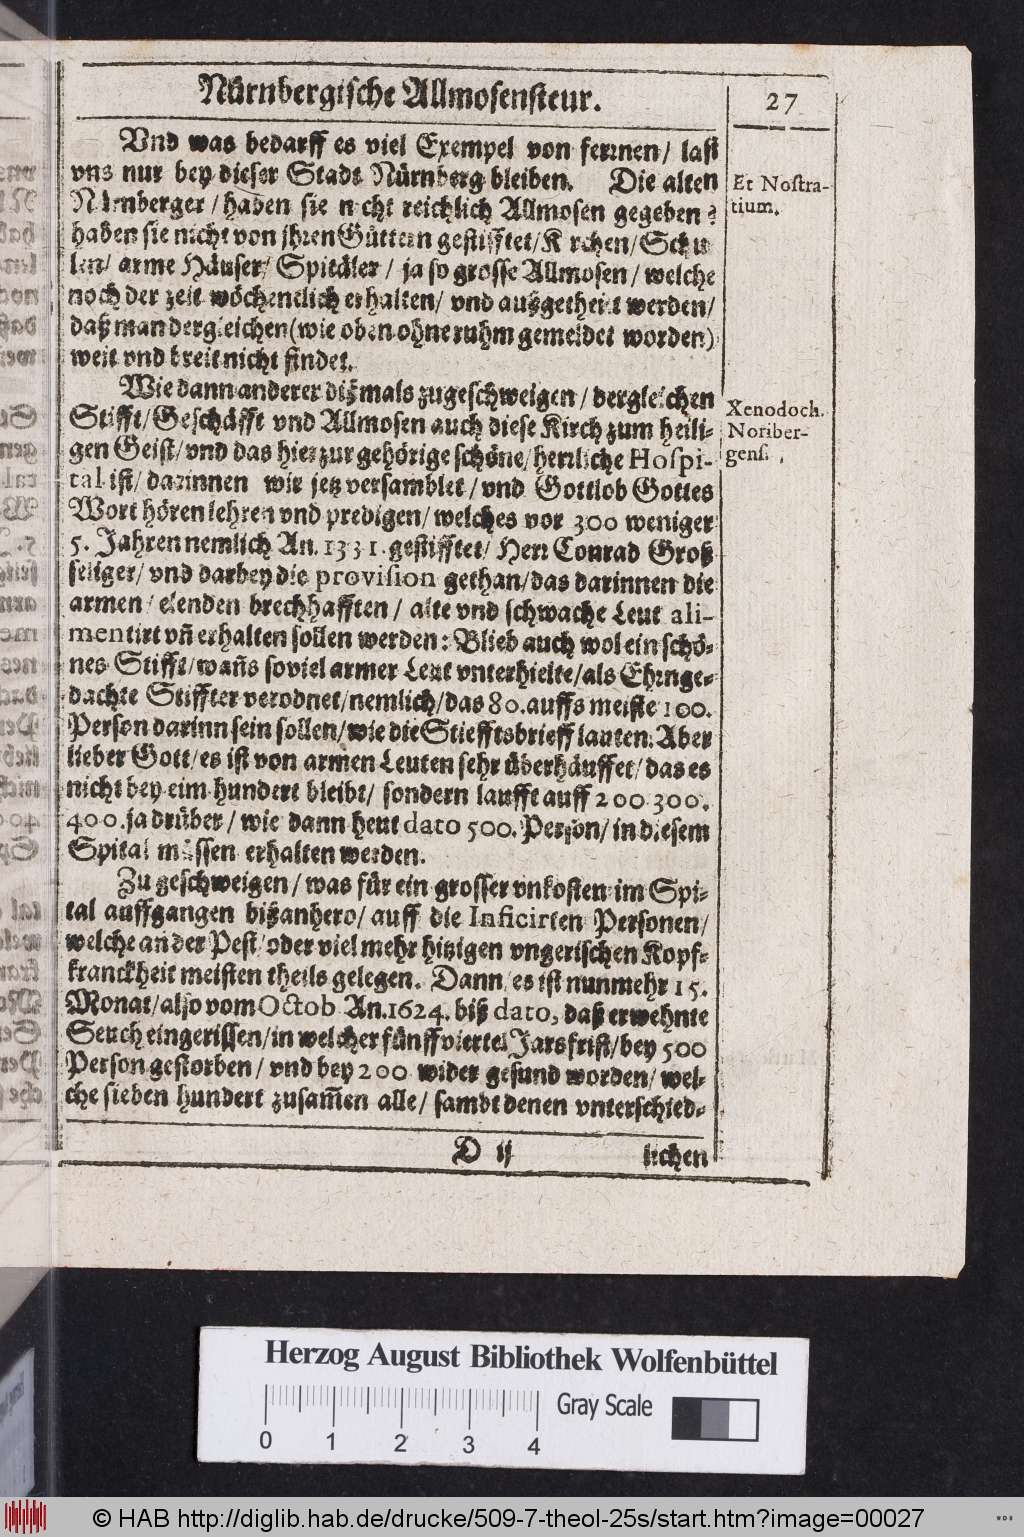 Nürnbergische Allmosensteur.
27
Vnd was bedarff es viel Exempel von fernen/ last
vns nur bey dieser Stadt Nürnberg bleiben. Die alten
Nürnberger/ haben sie nicht reichlich Allmosen gegeben?
haben sie nicht von jhren Güttern gestifftet/ Kirchen/ Schu
len/ arme Häuser/ Spitäler/ ja so grosse Allmosen/ welche
noch der zeit wöchentlich erhalten/ vnd außgetheilt werden/
daß man dergleichen (wie oben ohne ruhm gemeldet worden)
weit vnd breit nicht findet.
Et Nostra-
tium.
Wie dann anderer dißmals zugeschweigen/ dergleichen
Stifft/ Geschäfft vnd Allmosen auch diese Kirch zum heili-
gen Geist/ vnd das hierzur gehörige schöne/ herrliche Hospi-
tal ist/ darinnen wir jetz versamblet/ vnd Gottlob Gottes
Wort hören lehren vnd predigen/ welches vor 300 weniger
5. Jahren nemlich An. 1331. gestifftet/ Herr Conrad Groß
seliger/ vnd darbey die provision gethan/ das darinnen die
armen/ elenden brechhafften/ alte vnd schwache Leut ali-
mentirt vñ erhalten sollen werden: Blieb auch wol ein schö-
nes Stifft/ wañs soviel armer Leut vnterhielte/ als Ehrnge-
dachte Stiffter verodnet/ nemlich/ das 80. auffs meiste 100.
Person darinn sein sollen/ wie die Stiefftsbrieff lauten: Aber
lieber Gott/ es ist von armen Leuten sehr überhäuffet/ das es
nicht bey eim hundert bleibt/ sondern laufft auff 200. 300.
400. ja drüber/ wie dann heut dato 500. Person/ in diesem
Spital müssen erhalten werden.
Xenodoch.
Noriber-
gens.
Zu geschweigen/ was für ein grosser vnkosten im Spi-
tal auffgangen bißanhero/ auff die Inficirten Personen/
welche an der Pest/ oder viel mehr hitzigen vngerischen Kopf-
kranckheit meisten theils gelegen. Dann es ist nunmehr 15.
Monat/ also vom Octob. An. 1624. biß dato, daß erwehnte
Seuch eingerissen/ in welcher fünff viertel Jarsfrist/ bey 500
Person gestorben/ vnd bey 200 wider gesund worden/ wel-
che sieben hundert zusam̃en alle/ sambt denen vnterschied-
D ij
lichen
Herzog August Bibliothek Wolfenbüttel
Gray Scale
0 1 2 3 4
© HAB http://diglib.hab.de/drucke/509-7-theol-25s/start.htm?image=00027